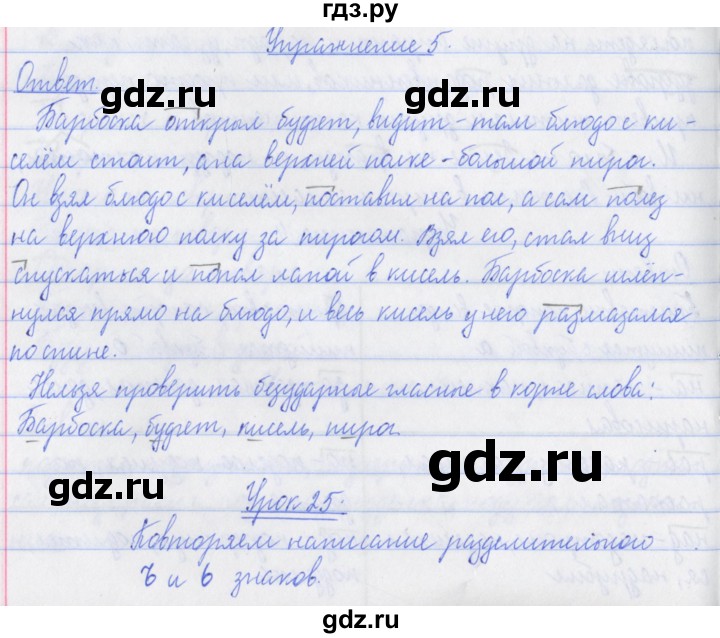 гдз.ру
Упражнение 5.
Ответ.
gdz.ru gdz.ru
Барбоска открыл буфет, видит - там блюдо с ки-
селём стоит, а на верхней полке - большой пирог.
Он взял блюдо с киселём, поставил на пол, а сам полез
на верхнюю полку за пирогом. Взял его, стал вниз
спускаться и попал лапой в кисель. Барбоска шлёп-
нулся прямо на блюдо, и весь кисель у него размазался
по спине.
Нельзя проверить безударные гласные в корне слова:
Барбоска, буфет, кисель, пирог.
gdz.ru gdz.ru
Урок 25.
Повторяем написание разделительного
Ъ и Ь знаков.
gdz.ru